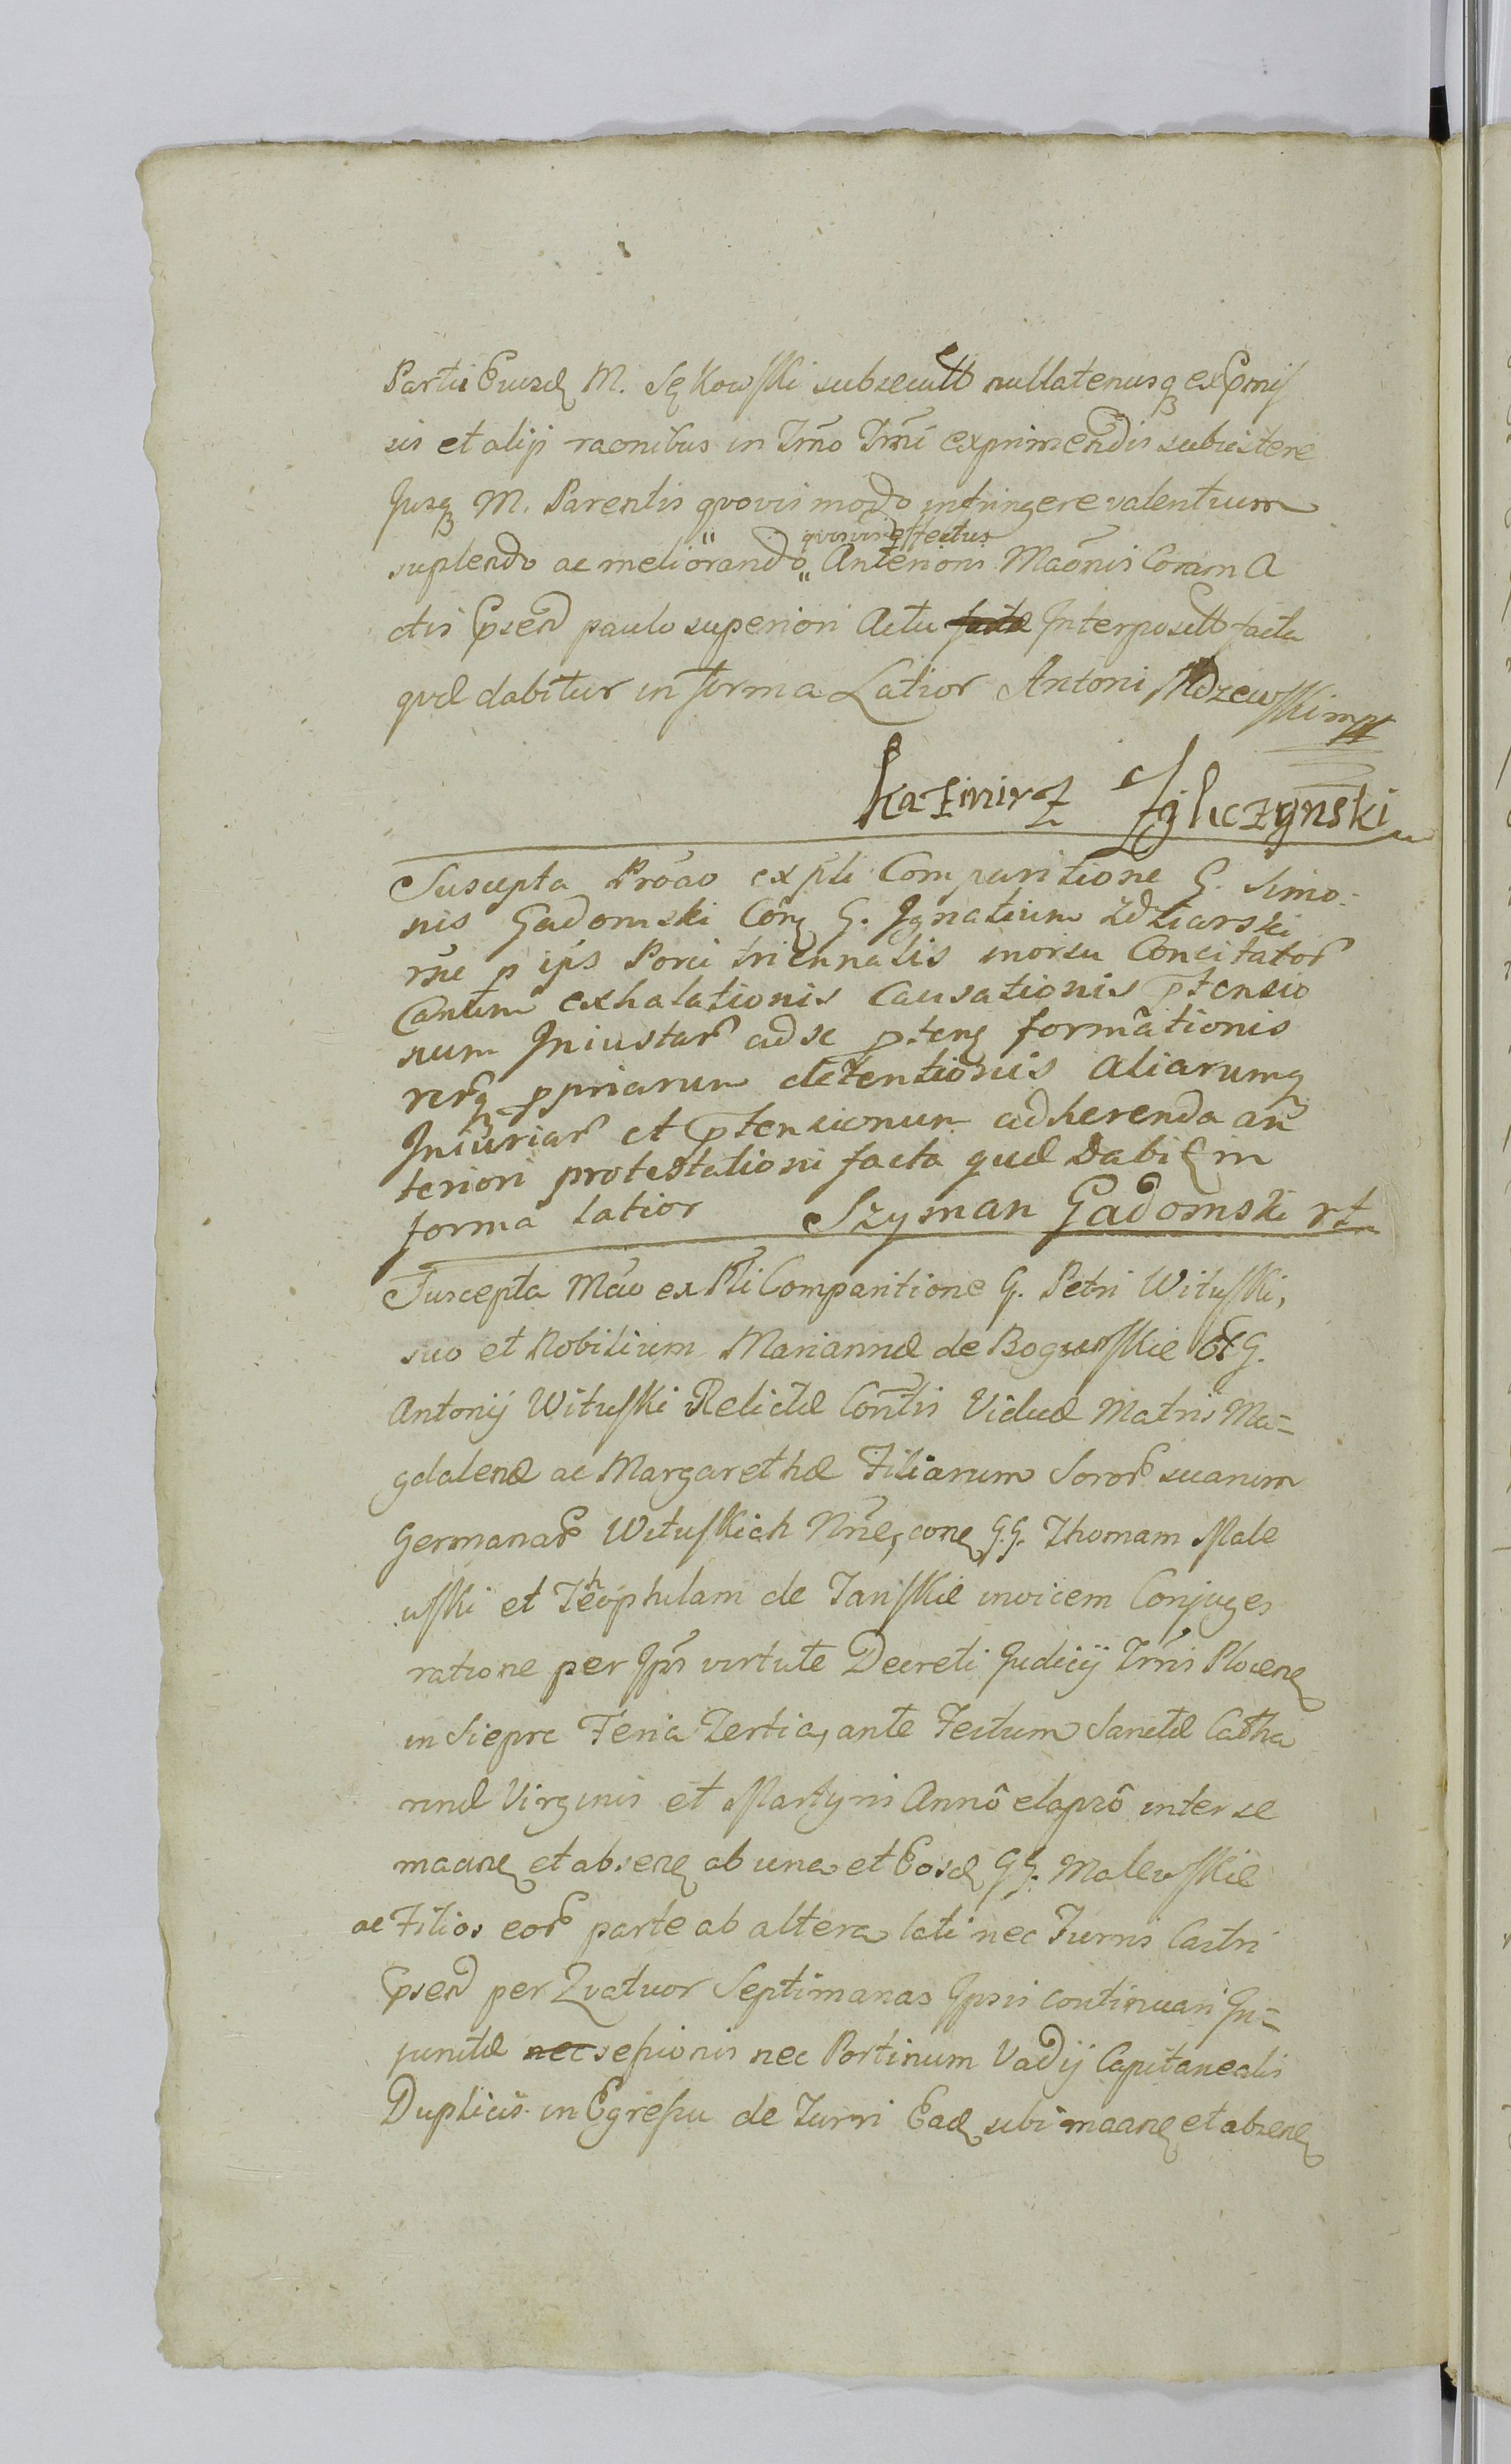 Partis Eiusd M. Sękowski subsecutt nullatenusq ex Pmis
sis et aliji raonibus in Trno Trni exprimendis subsistere
Jusq M. Parentis quovis modo infringere valentium
quovis deffectus
suplendo ac meliorando „ Anterioris Maonis Coram A
ctis Psend paulo superiori Actu facta Interposett facta
quæ dabitur in forma Latior Antoni Mdzewski mp
Kazimirz Zglczynski
Suscepta Proao ex pli Comparitione G. Simo-
nis Gadomski Conq G. Ignatium Zdziarski
rne p ips Porci triennalis morsu Concitator
Canum exhalationis Causationis Ptensio
num Iniustar ad se pteng formationis
rerq ppriarum detentionis aliarumq
Iniuriar et Ptensionum adherenda an
teriori protestationi facta quæ dabit in
forma latior Szyman Gadomski rt
Suscepta Mao ex Pli Comparitione G. Petri Wituski,
suo et Nobilium Mariannæ de Boguskie Ol G.
Antonij Wituski Relictæ Contis Viduæ Matris Ma=
gdalenæ ac Margarethæ Filiarum Soror suarum
Germanar Wituskich Nne, conq G.G. Thomam Male
wski et Theophilam de Janskie invicem Conjuges
ratione per Ips virtute Decreti Judicij Trris Plocens
in Sieprc Feria Tertia, ante Festum Sanctæ Catha
rinæ Virginis et Martyris Annô elapsô inter se
maane et absene ab una et Eosd GG. Malewskie
ac Filios eor parte ab altera lati nec Turris Castri
Psend per Qvatuor Septimanas Ipsis continuari In=
junctæ nec sessionis nec Portinum Vadij Capitanealis
Duplicis in Egressu de Turri Ead sibi maane et absene